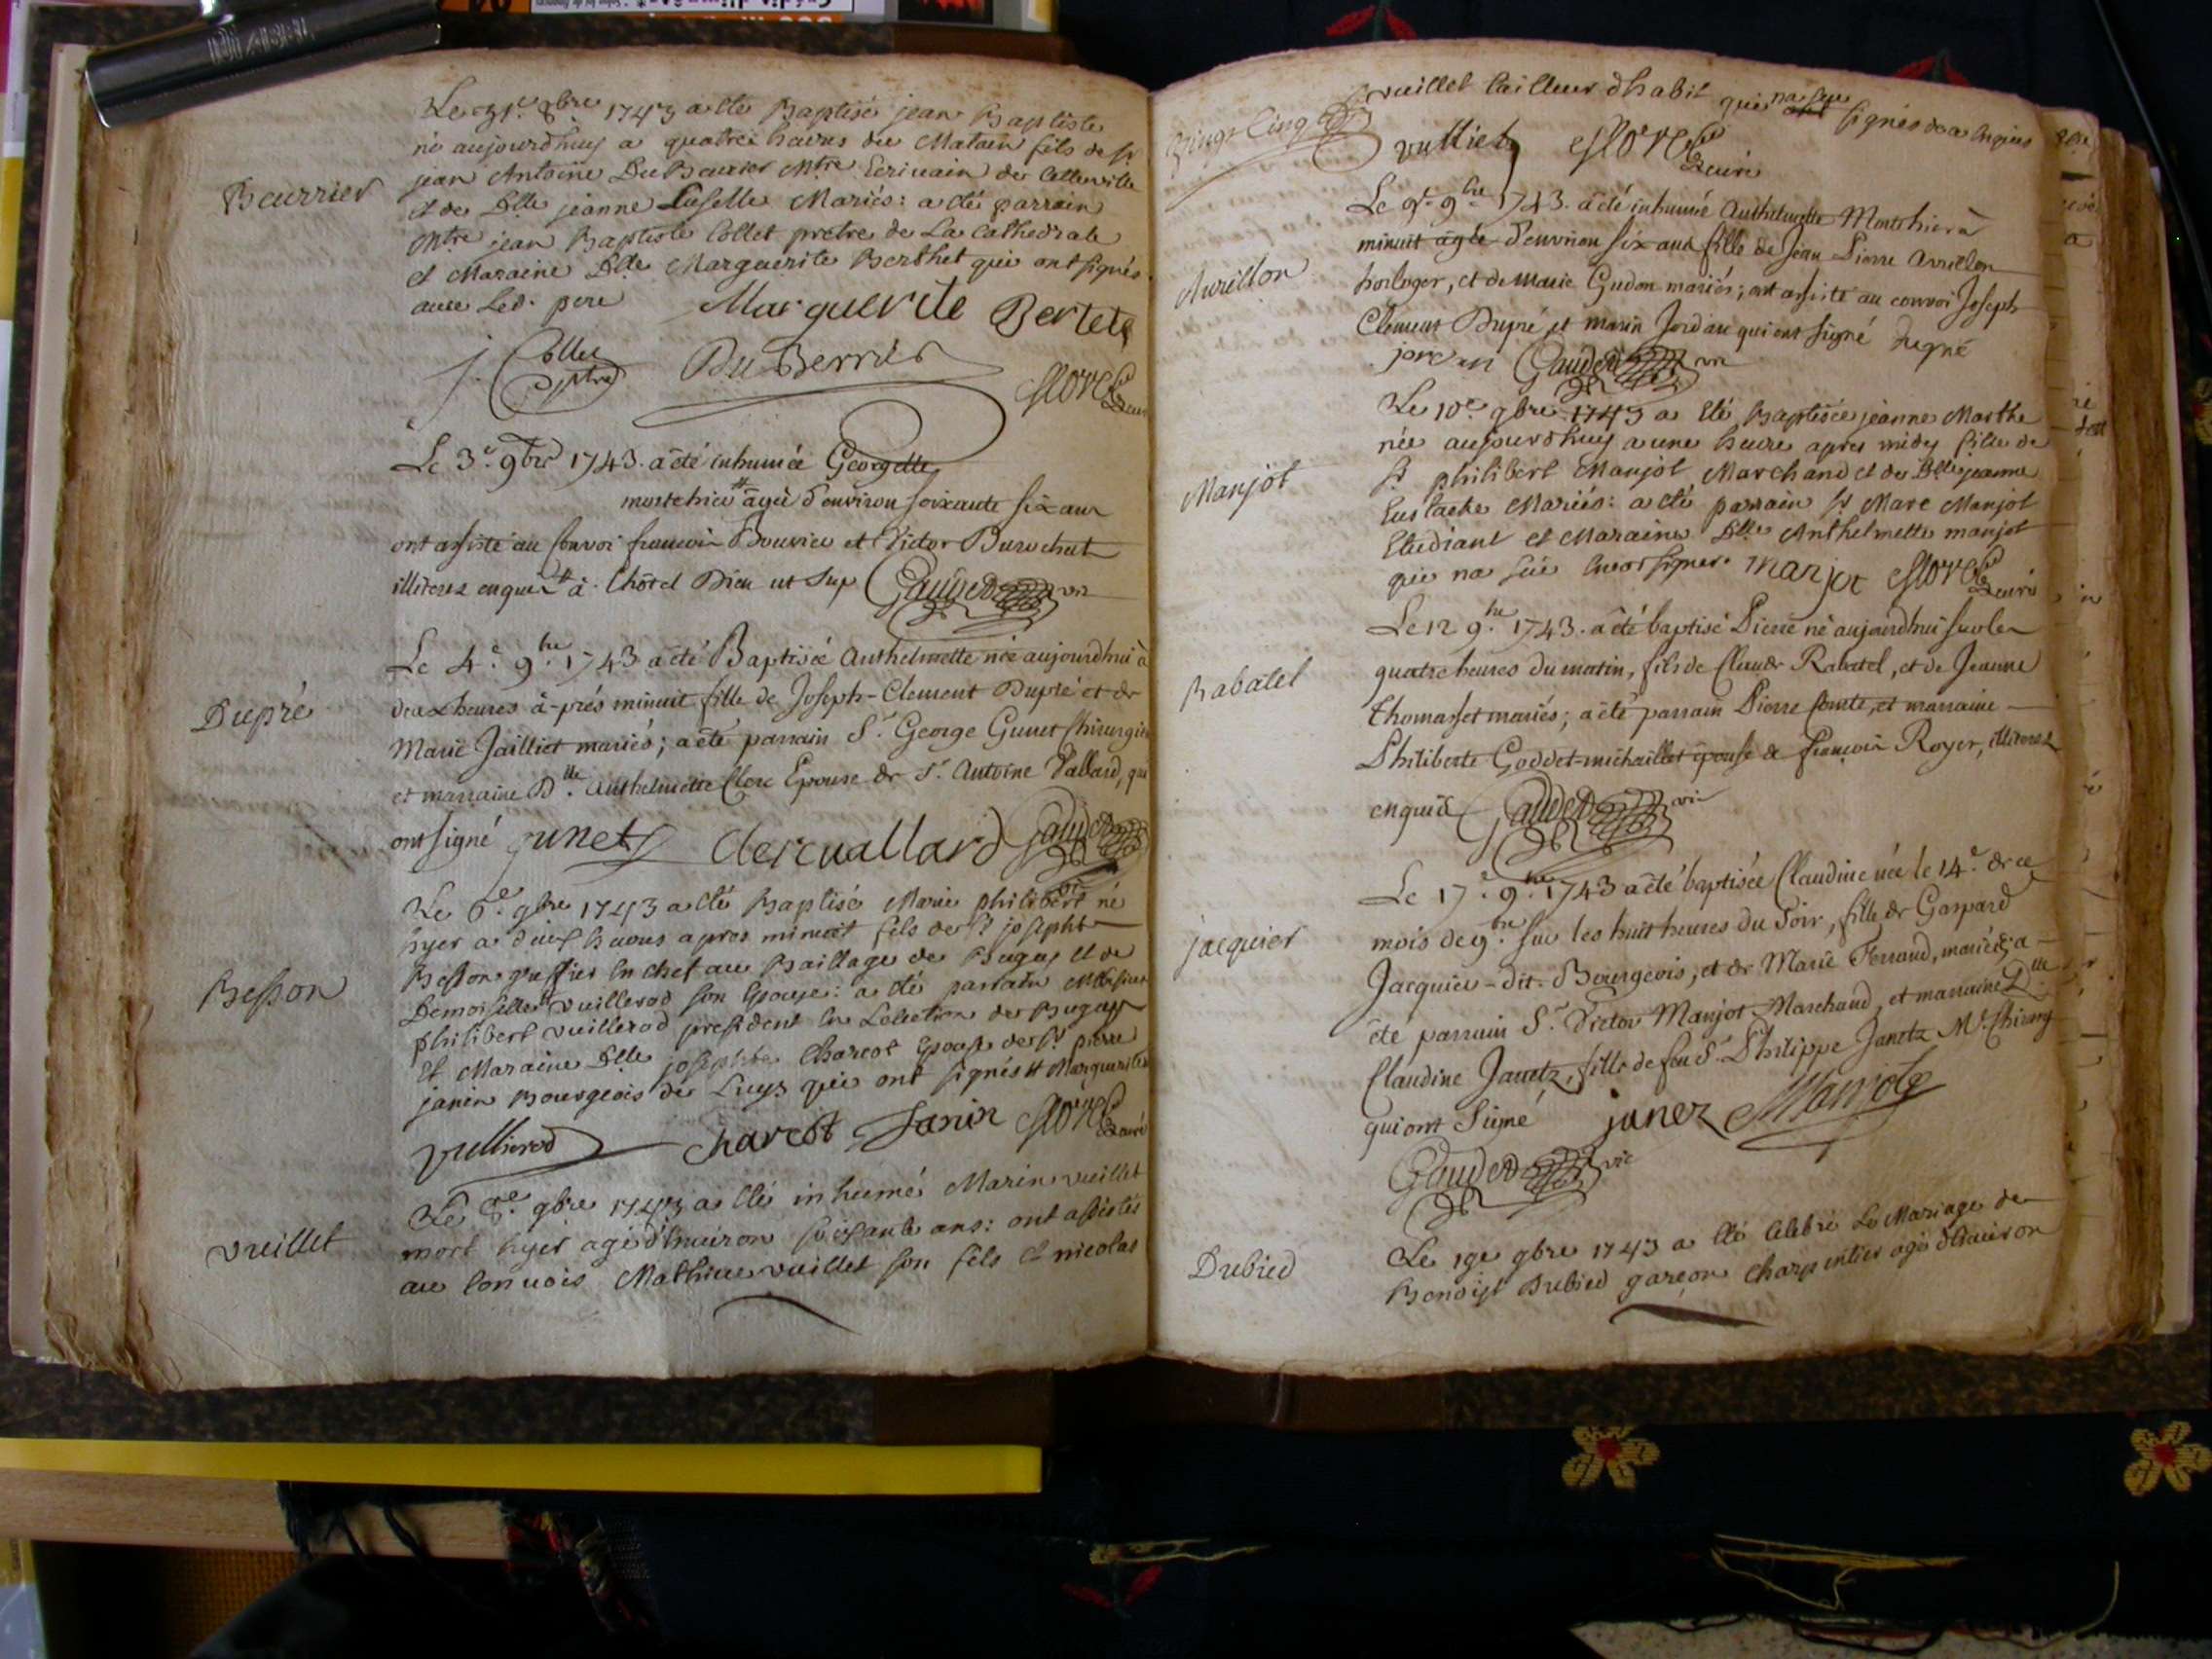 Le 31.e 8bre 1743 a été Baptisé jean Baptiste
né aujourdhuy a quatre heures du Matain fils de sr
jean Antoine DuBeurier Mtre Ecrivain de cette ville
et de Dlle jeanne Luselle Mariés: a été parrain
Mtre jean Baptiste Collet pretre de La Cathedrale
et Maraine Dlle Marguerite Berthet qui ont signés
avec Led. pere
Beurrier
Marguerite Bertet
j. Collet ptre
DuBerrier
Le 3.e 9bre 1743. a été inhumée Georgette
morte hier # âgée d'environ soixante six ans
ont assisté au convoi francois Bouvier et Victor
illiterez enquis # à l'hôtel Dieu ut sup Gaudet vic
Le 4.e 9.bre 1743 a été Baptisée Anthelmette née aujourdhui à
deux heures à-prés minuit fille de Joseph-Clement Dupré et de
Marie Jailliet mariés; a été parrain S.r George Gunet Chirurgien
et marraine D.lle Anthelmette Clerc Epouse de S.r Antoine Vallard, qui
ont signé junet Clercvallard Gaudet
Dupré
Le 6.e 9bre 1743 a été Baptisé Marie philibert né
hyer a deux heures apres minuit fils de Sr joseph
Besson greffier en chef au Baillage de Bugey et de
Demoiselle # vuillerod son Epouse: a été parrain Messire
philibert vuillerod president en Lelection de Bugey
Et Maraine Dlle josephte Charcot Epouse de Sr pierre
janin Bourgeois de Luys qui ont signés # Marguerite
Besson
vullierod charcot Janin
Le 8.e 9bre 1743 a été inhumé Marin vuillet
mort hyer agé d'environ soixante ans: ont assistés
au convois Mathieu vuillet son fils et nicolas
vuillet
vingt cinq
vuillet tailleur dhabit qui na sçu signer de a enquis
vulliet
Le 9.e 9.bre 1743. a été inhumée Anthelmette Morte hier à
minuit âgée d'environ six ans fille de Jean Pierre Avrillon
horloger, et de Marie Gudon mariés; ont assisté au convoi Joseph
Clement Dupré et marin Jordan qui ont signé dupré
jordan Gaudet vic
Avrillon
Le 10e 9bre 1743 a été Baptisée jeanne Marthe
née aujourdhuy a une heure apres midy fille de
Sr philibert Manjot Marchand et de Dlle jeanne
Eustache Mariés: a été parrain Sr Marc Manjot
Etudiant et Maraine Dlle Anthelmette manjot
qui na sçu signer. manjot
Manjot
Le 12 9.bre 1743. a été baptisé Pierre né aujourdhui sur les
quatre heures du matin, fils de Claude Rabatel, et de Jeanne
Thomasset mariés; a été parrain Pierre Comte, et marraine
Philiberte Goddet-michaillet épouse de françois Royer, illiterez
enquis Gaudet vic
Rabatel
Le 17.e 9.bre 1743 a été baptisée Claudine née le 14.e de ce
mois de 9.bre sur les huit heures du Soir, fille de Gaspard
Jacquier-dit-Bourgeois, et de Marie Ferraud, mariés; a
été parrain S.r Victor Manjot Marchand, et marraine D.lle
Claudine Janetz, fille de feu S.r Philippe Janetz M.e Chirurg
qui ont Signé janez Manjot
Gaudet vic
jacquier
Le 19e 9bre 1743 a été Celebré Le Mariage de
Benoist Dubied garçon charpentier agé d'environ
Dubied